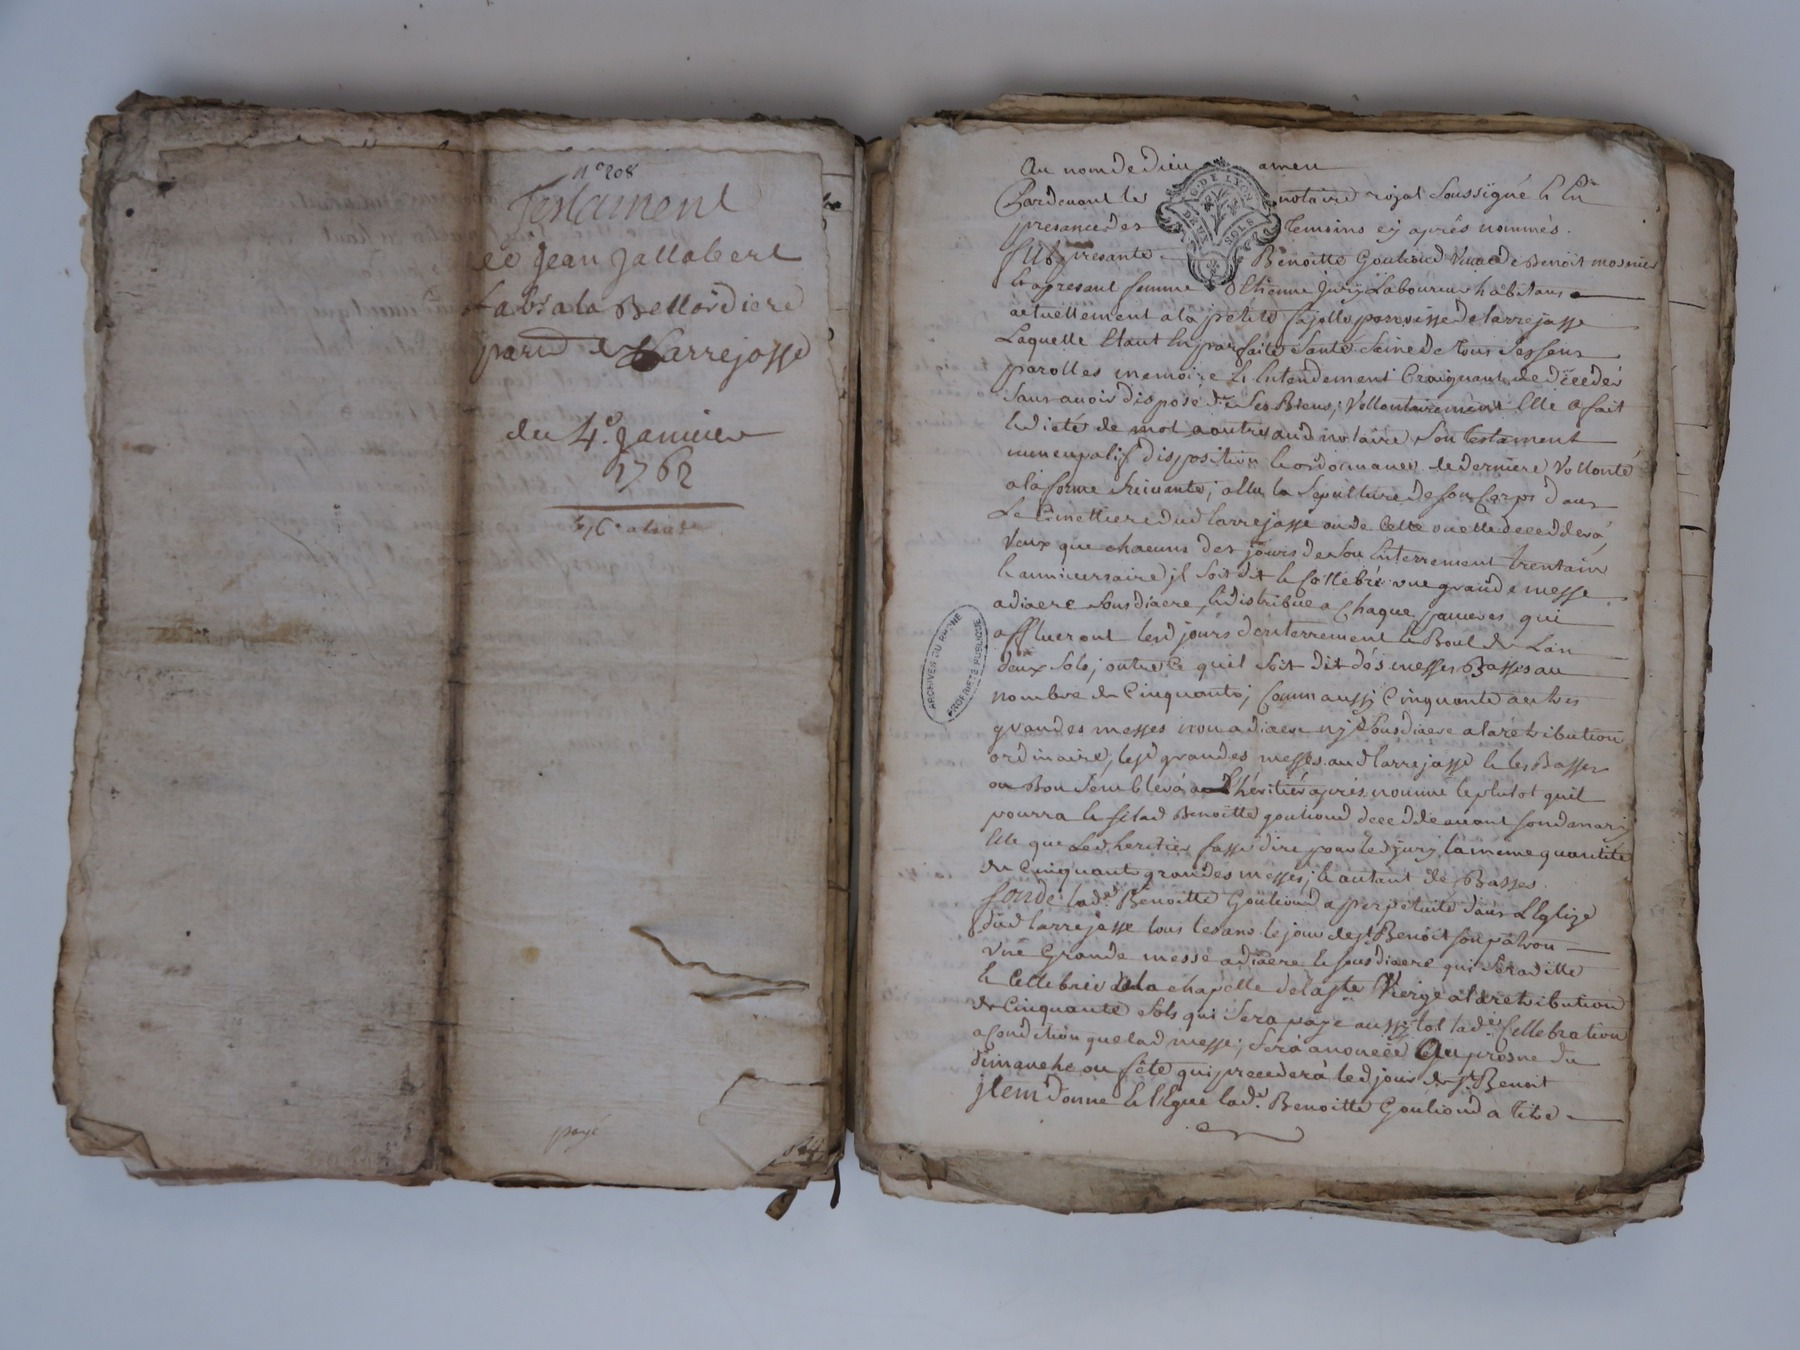 n.º 208
Testament
de Jean Jallabert
a la Bellordiere
parr. de Larrejasse
du 4.e Janvier
1762
payé
Au nom de dieu amen
Pardevant les notaire royal soussigné & en
presance des temoins cy aprés nommés.
fut presante Benoitte Goutiond veuve de Benoit mosnier
& apresant femme d'Ethienne jury Laboureur habitans
actuellement a la petite fajolle parroisse de larrejasse
Laquelle Etant En parfaite Santé Saine de tous Ses Sens
parolles memoire & Entendement Craignant de déceder
Sans avoir disposé de Ses Biens, Vollontairement Elle a fait
& dicté de mot a autre aud notaire Son testament
nuncupatif disposition & ordonnance de derniere Vollonté
a la forme Suivante; Eslu la Sepulture de Son Corps dans
Le Cimettiere dud larrejasse ou de Celle ou elle deceddera,
Veux que chacuns des jours de Son Enterrement trentain
& anniversaire jl Soit dit & Cellebré une grande messe
a diacre Sousdiacre, & distribué a Chaque pauvres qui
afflueront lesd jours d'enterrement & Bout de L'an
deux Sols; outre Ce quil Soit dit dés messes Basses au
nombre de Cinquante; Comm aussi Cinquante autres
grandes messes non a diacre ny Sousdiacre a la rétribution
ordinaire, lesd grandes messes aud larrejasse & les Basses
ou Bon Semblera a L'héritiér aprés nommé le plutot quil
pourra & si lad Benoitte goutiond decedde avant son d mary
Elle que Led heritier fasse dire pour led jury la meme quantité
de Cinquante grandes messes, & autant de Basses.
fonde lad.e Benoitte Goutiond a perpetuité dans L'Eglize
dud larrejasse tous les ans le jour de st Benoit son patron
une Grande messe a diacre & sousdiacre qui sera ditte
& Cellebrée a la chapelle de la ste Vierge a la retribution
de Cinquante sols qui Sera paye aussitot lad.e Cellebration
a Condition que lad messe, sera anoncée Au prosne du
dimanche ou fête qui precedera led jour de st Benoit
jtem donne & légue lad.e Benoitte Goutiond a titre
G. DE LYON
DEUX SOLS
ARCHIVES DU RHÔNE
PROPRIÉTÉ PUBLIQUE